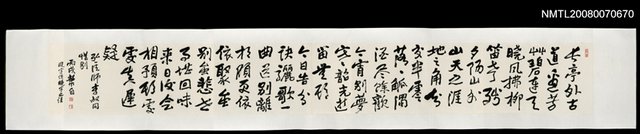 長亭外古
道邊芳
草碧連天
晚風拂柳
笛聲殘
夕陽山外
山天之涯
地之角知
交半零
落一瓢濁
酒盡餘歡
今宵別夢
寒韶光逝
留無計
今日告分
袂驪歌一
曲送別離
相顧更依
依聚雖
別雖悲世
事堪回味
來日後會
相預期
去莫遲
疑
弘一法師李叔同
惜別
NMTL20080070670